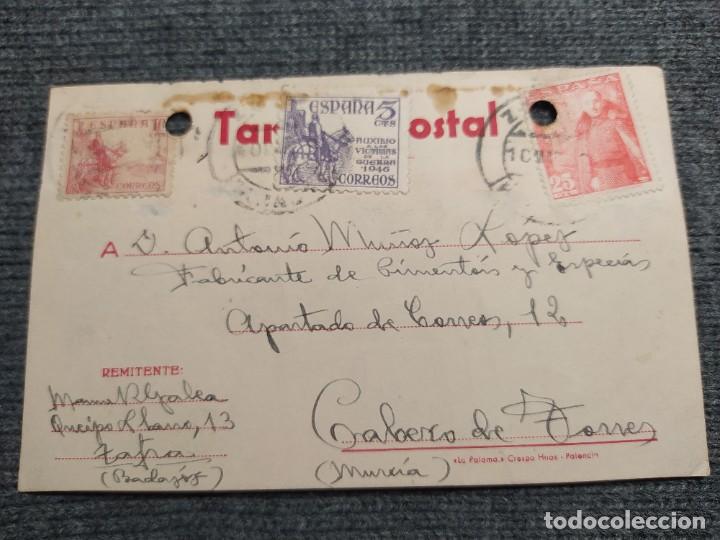 Tar ostal
ESPAÑA 10
CORREOS
ESPAÑA 5
CTS
AUXILIO
A LAS
VICTIMAS
DE LA
GUERRA
1946
CORREOS
ESPAÑA
25
A D. Antonio Muñoz Lopez
Fabricante de Pimentón y Especias
Apartado de Correos, 12
REMITENTE:
Queipo Llano, 13
Zafra
(Badajoz)
Cabezo de Torres
(Murcia)
«La Paloma.» Crespo Hnos - Palencia
todocoleccion
todocoleccion.net